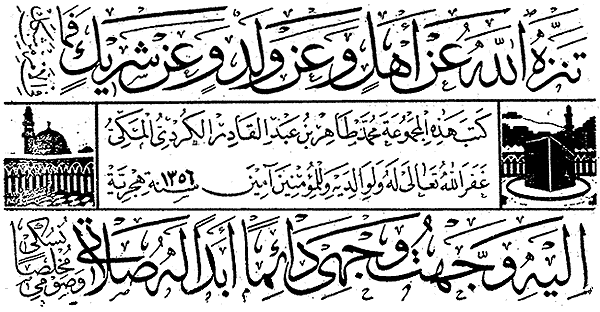 تنزه الله عن أهل وعن ولد وعن شريك فما
كتب هذه المجموعة محمد طاهر بن عبد القادر الكردي المكي
غفر الله تعالى له ولوالديه وللمؤمنين آمين سنة ١٣٥٦ هجرية
إليه وجهت وجهي دائمًا أبدًا له صلاتي وصومي مخلصا نسكي